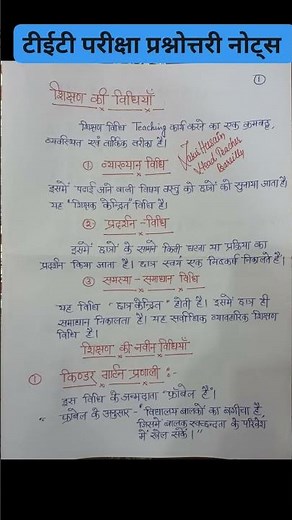 टीईटी परीक्षा प्रश्नोत्तरी नोट्स
①
शिक्षण की विधियाँ
शिक्षण विधि Teaching कार्य करने का एक क्रमबद्ध,
व्यवस्थित एवं तार्किक तरीका है।
① व्याख्यान विधि
इसमें पढ़ाई जाने वाली विषय वस्तु को छात्रों को सुनाया जाता है।
यह "शिक्षक केन्द्रित" विधि है।
② प्रदर्शन - विधि
इसमें छात्रों के सामने किसी घटना या प्रक्रिया का
प्रदर्शन किया जाता है। छात्र स्वयं एक निष्कर्ष निकालते हैं।
③ समस्या - समाधान विधि
यह विधि "छात्र केन्द्रित" होती है। इसमें छात्र ही
समाधान निकालता है। यह सर्वाधिक व्यवहारिक शिक्षण
विधि है।
शिक्षण की नवीन विधियाँ
① किण्डर गार्टन प्रणाली :-
इस विधि के जन्मदाता "फ्रॉबेल हैं"।
फ्रॉबेल के अनुसार - "विद्यालय बालकों का बगीचा है,
जिसमें बालक स्वच्छन्दता के परिवेश
में खेल सकें।"